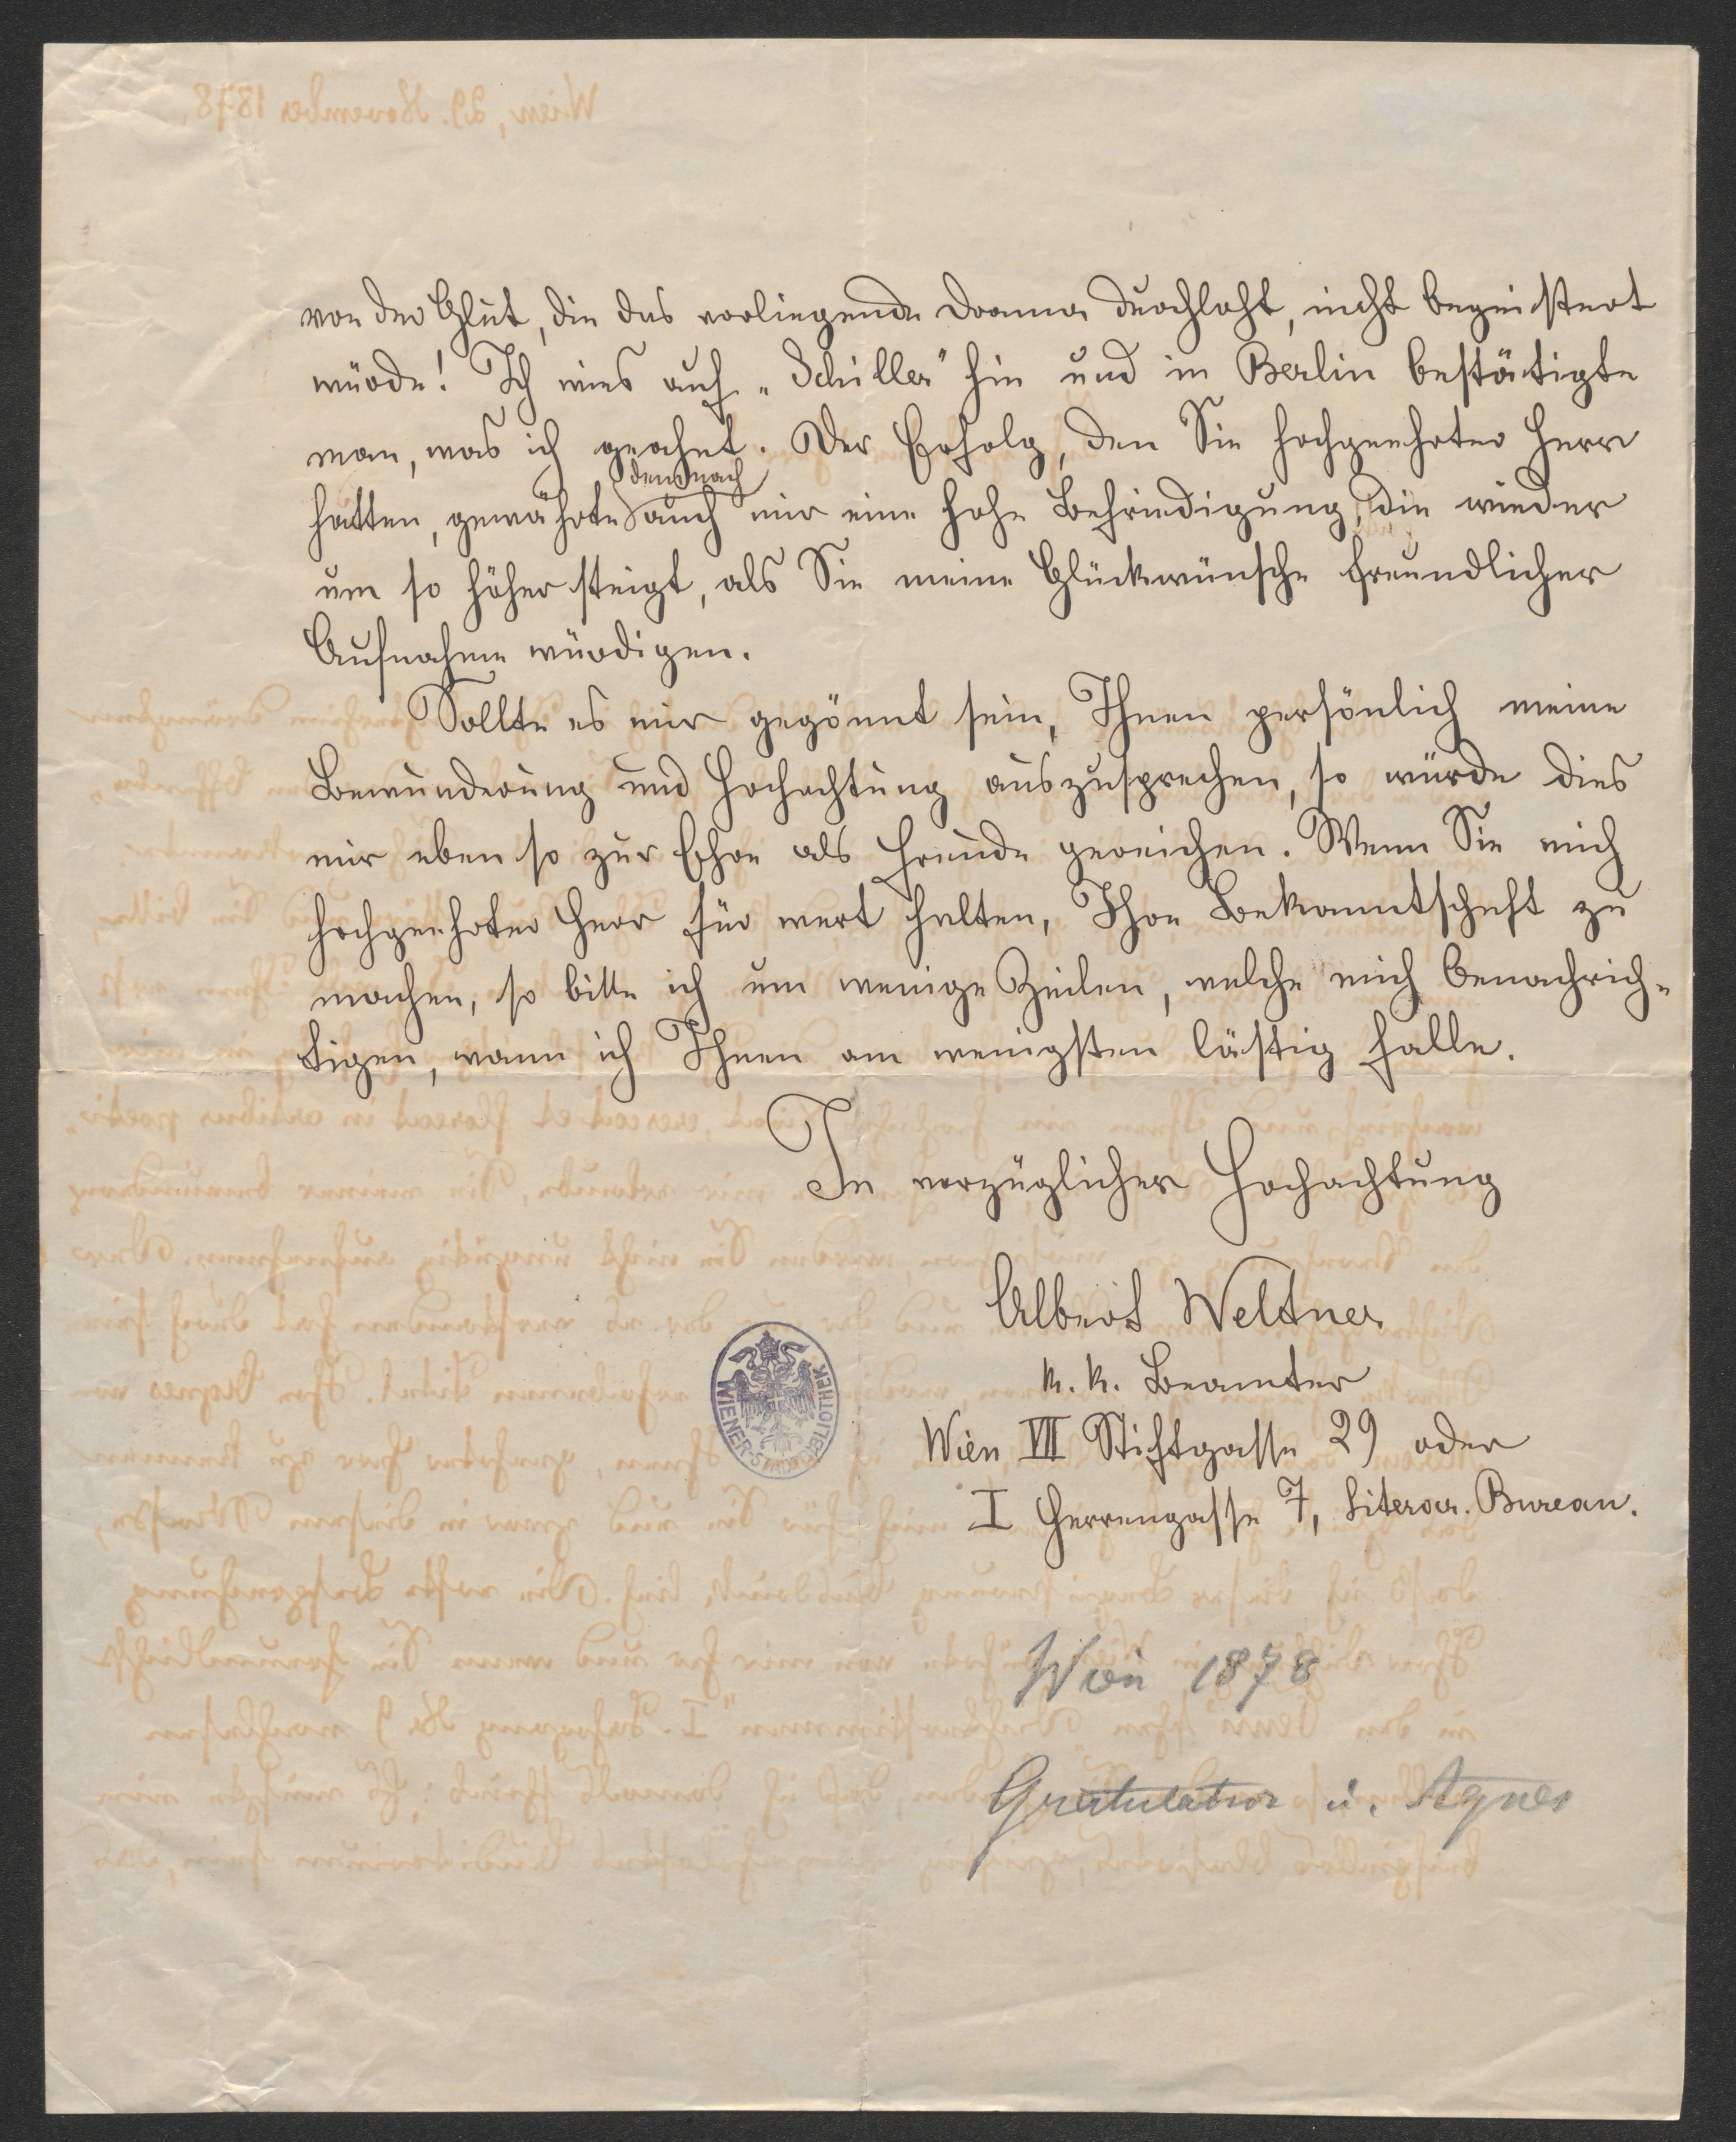 von der Glut, die das vorliegende Drama durchloht, nicht begeistert
würde! Ich wies auf „Schiller" hin und in Berlin bestätigte
man, was ich geahnt. Der Erfolg, den Sie hochgeehrter Herr
demnach
hatten, gewährte auch mir eine hohe Befriedigung, die wieder
um so höher steigt, als Sie meine Glückwünsche freundlicher
Aufnahme würdigen.
Sollte es mir gegönnt sein, Ihnen persönlich meine
Bewunderung und Hochachtung auszusprechen, so würde dies
mir eben so zur Ehre als Freude gereichen. Wenn Sie mich
hochgeehrter Herr für wert halten, Ihre Bekanntschaft zu
machen, so bitte ich um wenige Zeilen, welche mich benachrich-
tigen, wann ich Ihnen am wenigsten lästig falle.
In vorzüglicher Hochachtung
Albert Weltner
k. k. Beamter
Wien VII Stiftgasse 29 oder
I Herrengasse 7, Literar. Bureau.
WIENER STADTBIBLIOTHEK
Wien 1878
Gratulation u. Agnes